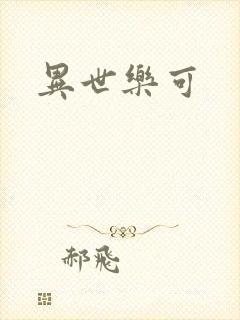 異世樂可
郝飛